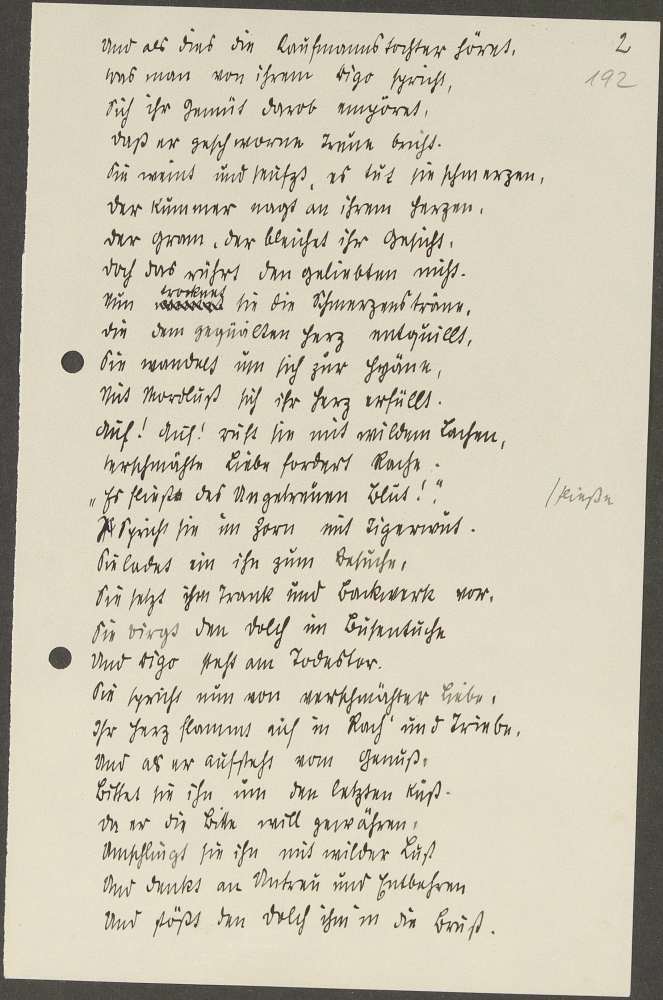 2
192
Und als dies die Kaufmannstochter höret,
was man von ihrem Rigo spricht,
Sich ihr Gemüt darob empöret,
daß er geschworne Treue bricht.
Sie weint und seufzt, es tut sie schmerzen,
der Kummer nagt an ihrem Herzen,
der Gram, der bleichet ihr Gesicht,
doch das rührt den geliebten nicht.
Nun trocknet sie die Schmerzensträne,
die dem gequälten Herz entquillt,
Sie wandelt um sich zur Hyäne,
Mit Mordlust sich ihr Herz erfüllt.
Auf! Auf! ruft sie mit wildem Lachen,
verschmähte Liebe fordert Rache.
„Es fließe des Ungetreuen Blut!" /fließe
Spricht sie im Zorn mit Tigerwut.
Sie ladet ein ihn zum Besuche,
Sie setzt ihm Trank und Backwerk vor,
Sie birgt den Dolch im Busentuche
Und Rigo steht am Todestor.
Sie spricht nun von verschmähter Liebe,
Ihr Herz flammt auf in Rach' und Triebe,
Und als er aufsteht vom Genuß,
Bittet sie ihn um den letzten Kuß.
Da er die Bitte will gewähren,
Umschlingt sie ihn mit wilder Lust
Und denkt an Untreu und Entbehren
Und stößt den Dolch ihm in die Brust.